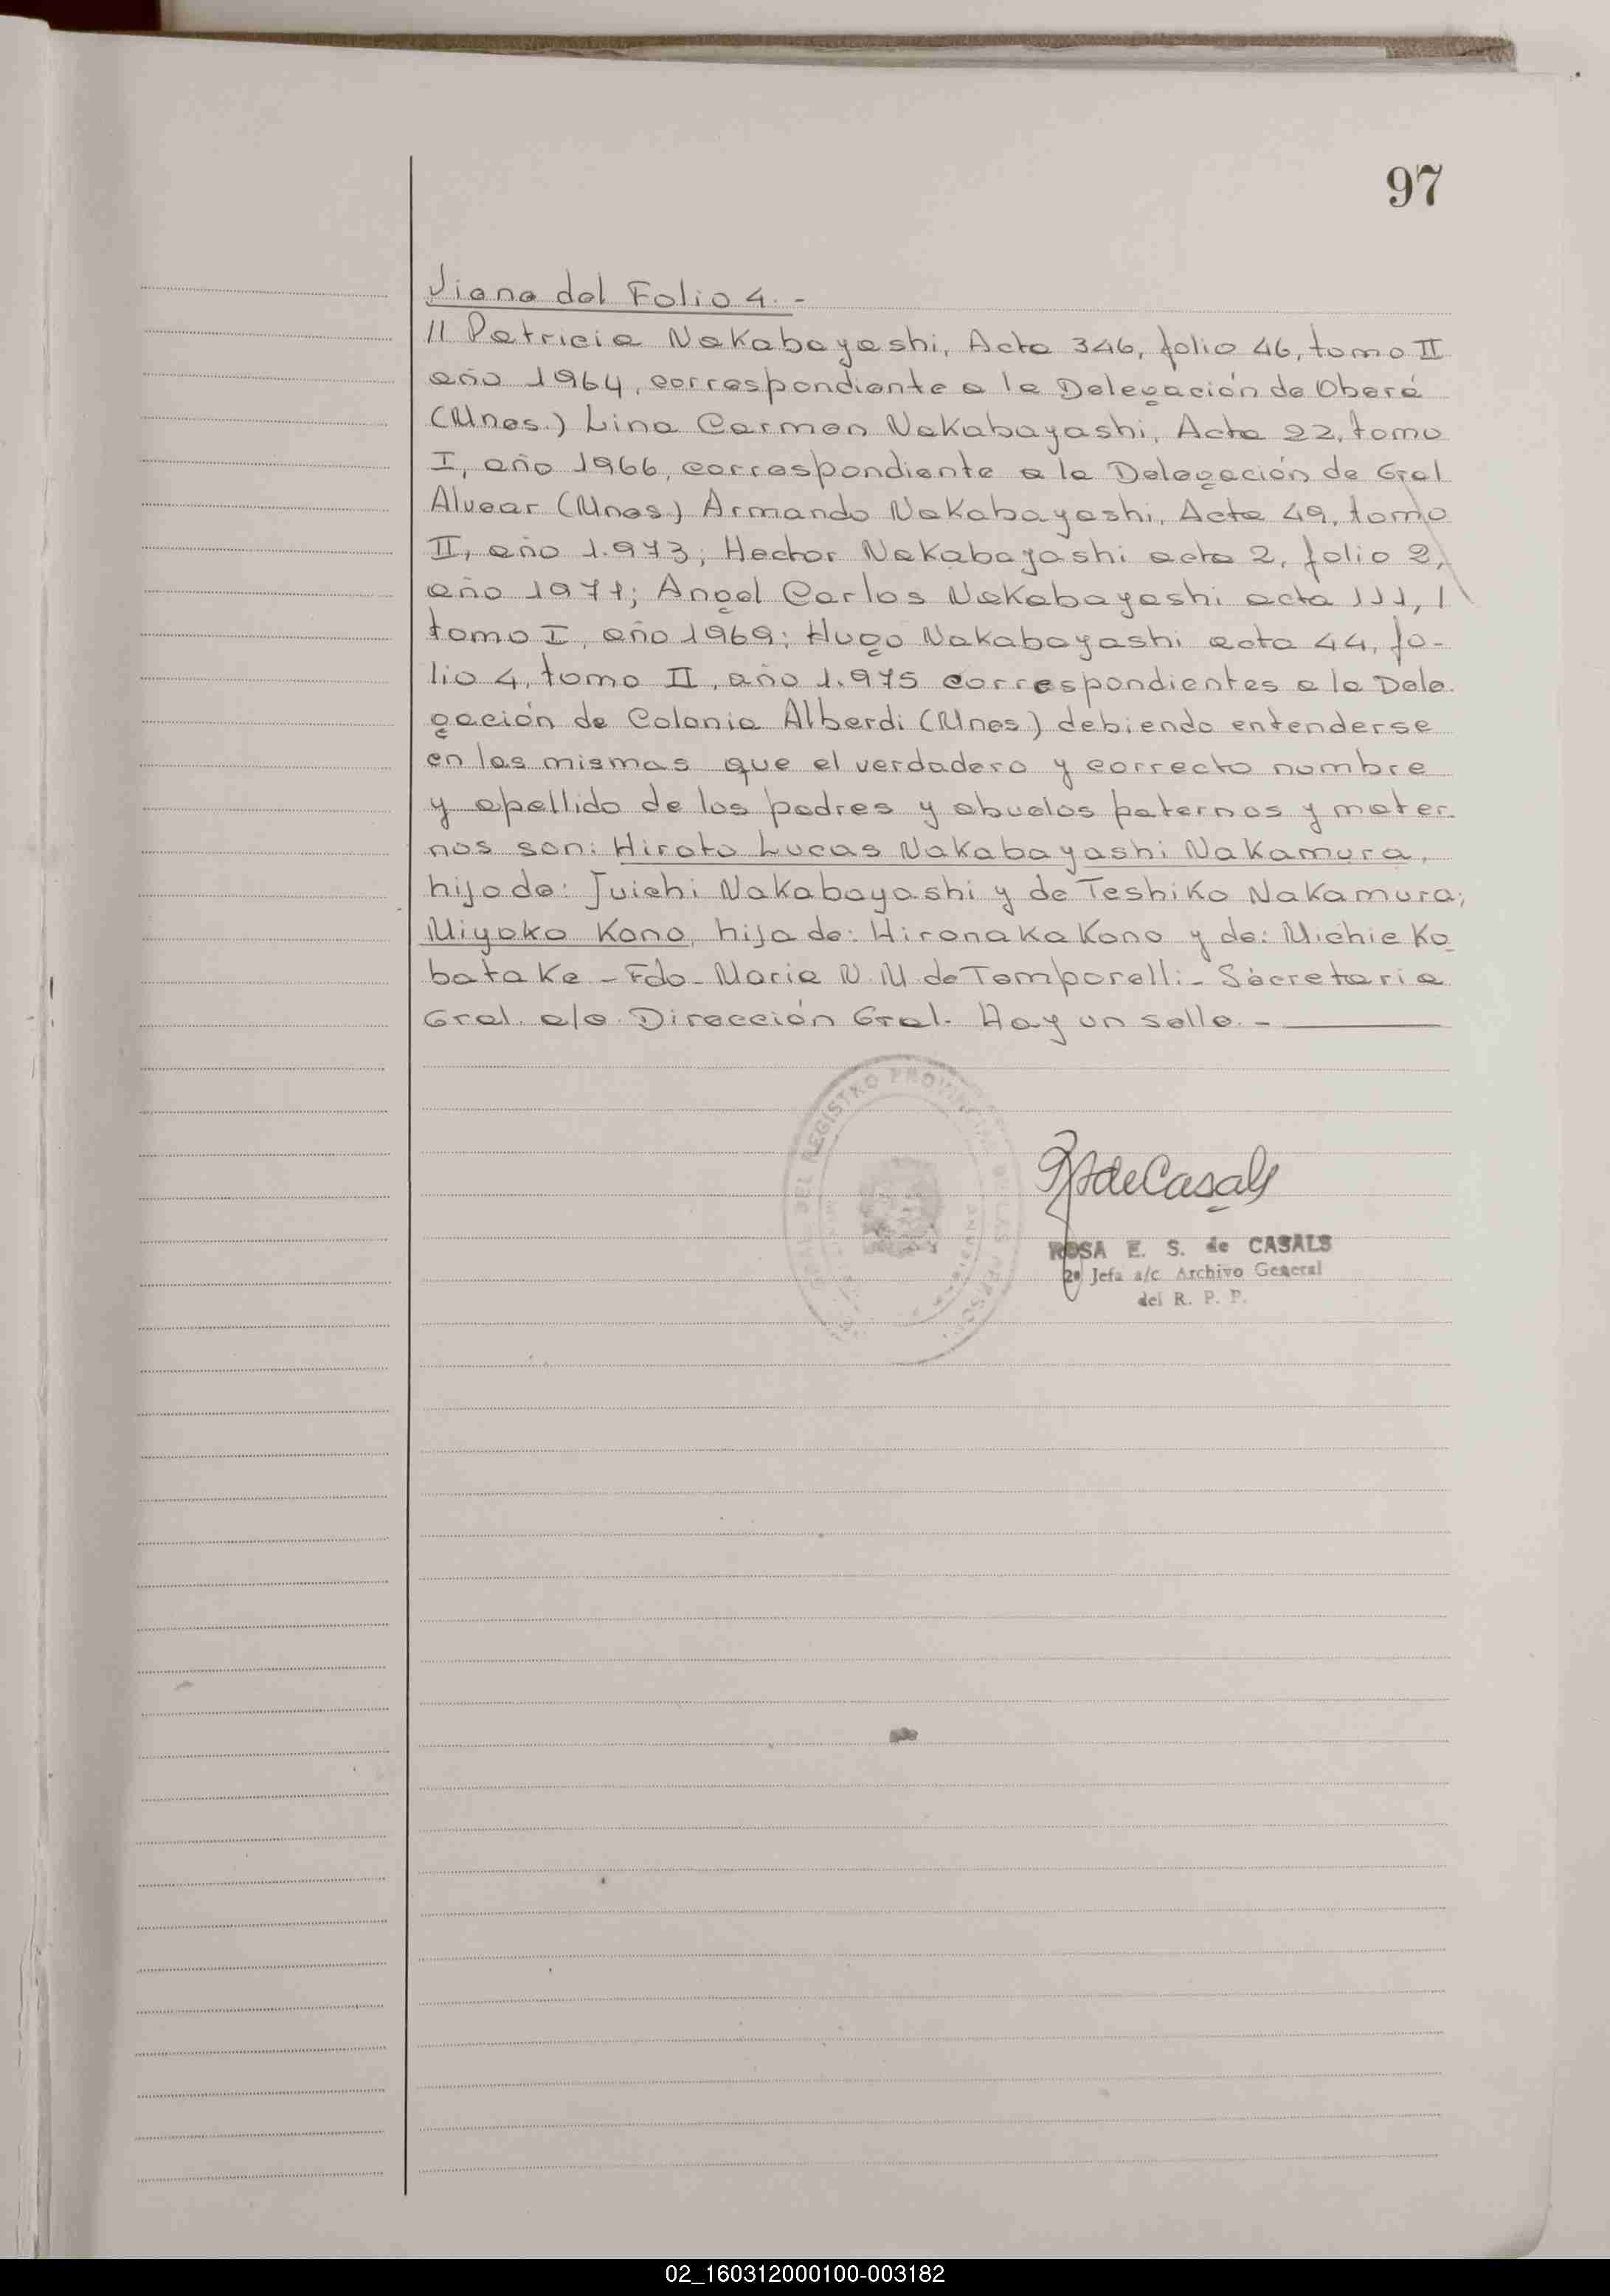 97
Viene del Folio 4. -
// Patricia Nakabayashi, Acta 346, folio 46, tomo II
año 1964, correspondiente a la Delegación de Oberá
(Mnes.) Lina Carmen Nakabayashi, Acta 22, tomo
I, año 1966, correspondiente a la Delegación de Gral
Alvear (Mnes.) Armando Nakabayashi, Acta 49, tomo
II, año 1.973; Hector Nakabayashi acta 2, folio 2,
año 1971; Angel Carlos Nakabayashi acta 111,
tomo I, año 1969; Hugo Nakabayashi acta 44, fo-
lio 4, tomo II, año 1.975 correspondientes a la Dele-
gación de Colonia Alberdi (Mnes.) debiendo entenderse
en las mismas que el verdadero y correcto nombre
y apellido de los padres y abuelos paternos y mater-
nos son: Hiroto Lucas Nakabayashi Nakamura,
hijo de: Juichi Nakabayashi y de Teshiko Nakamura;
Miyoko Kono, hija de: Hironaka Kono y de: Michie Ko-
batake - Fdo - Maria N. M. de Temporelli - Secretaria
Gral. a/c. Dirección Gral. Hay un sello. -
DEL REGISTRO PROVINCIAL DE LAS PERSONAS
deCasals
ROSA E. S. de CASALS
2ª Jefa a/c Archivo General
del R. P. P.
02_160312000100-003182